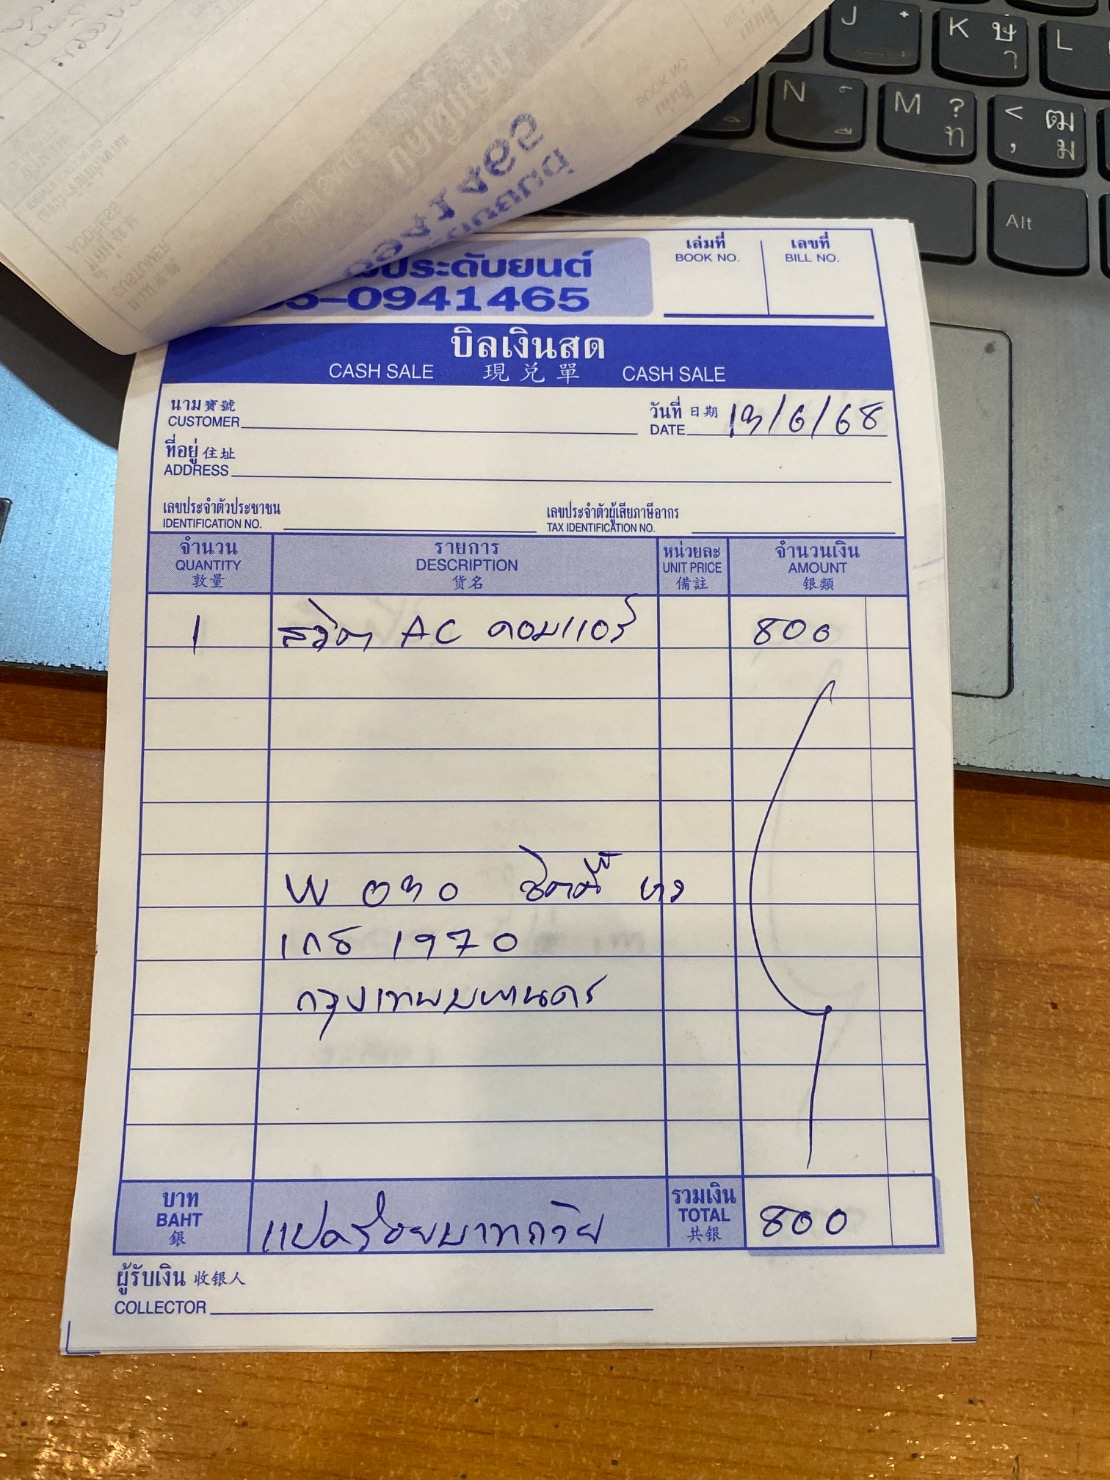 ประดับยนต์
-0941465
เล่มที่ เลขที่
BOOK NO. BILL NO.
บิลเงินสด
CASH SALE 現兑單 CASH SALE
นาม寶號 วันที่ 日期 13/6/68
CUSTOMER DATE
ที่อยู่ 住址
ADDRESS
เลขประจำตัวประชาชน เลขประจำตัวผู้เสียภาษีอากร
IDENTIFICATION NO. TAX IDENTIFICATION NO.
จำนวน รายการ หน่วยละ จำนวนเงิน
QUANTITY DESCRIPTION UNIT PRICE AMOUNT
货名 備註 银類
1 สวิต AC คอมแอร์ 800
W 030 ซิตตี้
เกธ 1970
กรุงเทพมหานคร
บาท รวมเงิน
BAHT แปดร้อยบาทถ้วย TOTAL 800
銀 共银
ผู้รับเงิน 收银人
COLLECTOR
J
K ษ า
L
N
M ? ท
< , ฒ ม
Alt